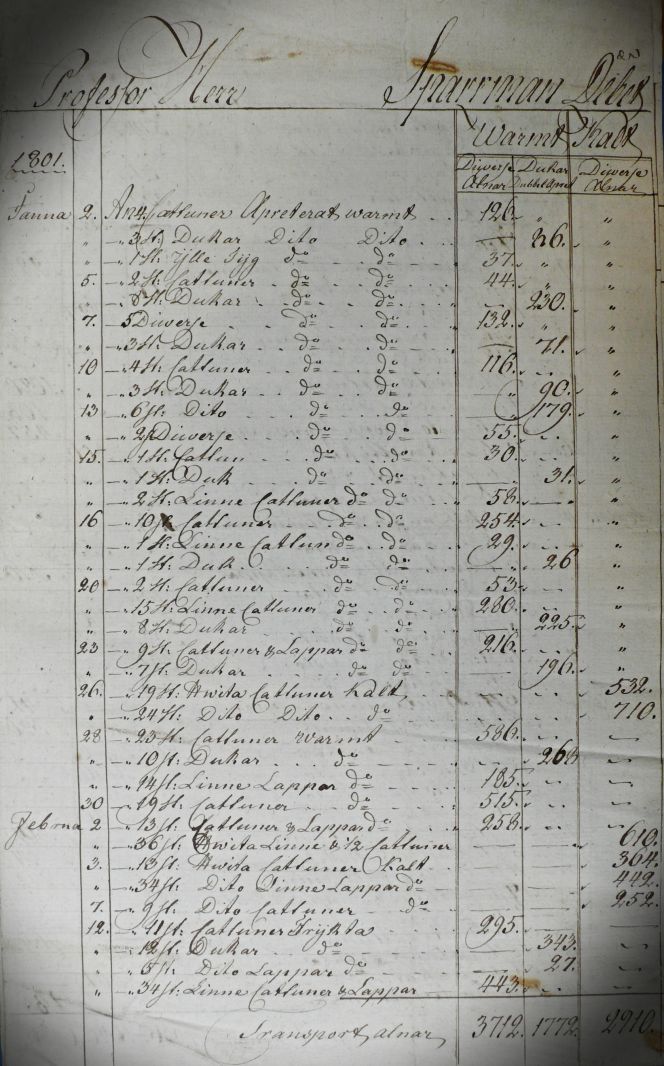 Professor Herr Sparrman Debet
Warmt Kalt
1801. Diverse Alnar Dukar Dubbel Apret Diverse Alnar
Janua 2. An 4 St: Catluner Apreterat warmt 126. " "
" " 3 St: Dukar Dito Dito — 86. "
" " 1 St: Ylle Tyg do do 37. " "
5. " 2 St: Catluner do do 44. " "
" " 8 St: Dukar do do — 230. "
7. 5 Diverse do do 132. " "
" " 3 St: Dukar do do — 71. "
10 " 4 St: Catluner do do 116. "
" " 3 St: Dukar do do " 90. "
13 " 6 St: Dito do do " 179. "
" " 2 St Diverse do do 55. "
15. " 1 St: Catlun do do 30. "
" " 1 St: Duk do do — 31. "
" " 2 St: Linne Catluner do do 58. "
16 " 10 St Catluner do do 254. "
" " 1 St: Linne Catlun do do 29. "
" " 1 St: Duk do do — 26 "
20 " 2 St: Catluner do do 53 "
" " 15 St: Linne Catluner do do 280. "
" " 8 St: Dukar do do 225. "
23 " 9 St: Catluner & Lappar do do 216. "
" " 7 St: Dukar do do 196. "
26. " 19 St: Hwita Catluner Kalt 532.
" " 24 St: Dito Dito do 710.
28 " 23 St: Catluner warmt 586. —
" " 10 St: Dukar do 268 —
" " 14 St: Linne Lappar do 185. —
30 " 19 St: Catluner do 515. —
Februa 2 " 13 St: Catluner & Lappar do 258. —
" " 36 St: Hwita Linne & 1/2 Catluner — 610.
3. " 13 St: Hwita Catluner Kalt — 364.
" " 34 St: Dito Linne Lappar do — 442.
7. " 9 St: Dito Catluner do — 252.
12. " 11 St: Catluner Trykta 295.
" " 12 St: Dukar do 343.
" " 6 St: Dito Lappar do 27.
" " 34 St: Linne Catluner & Lappar 443. —
Transport, alnar 3712. 1772. 2910.